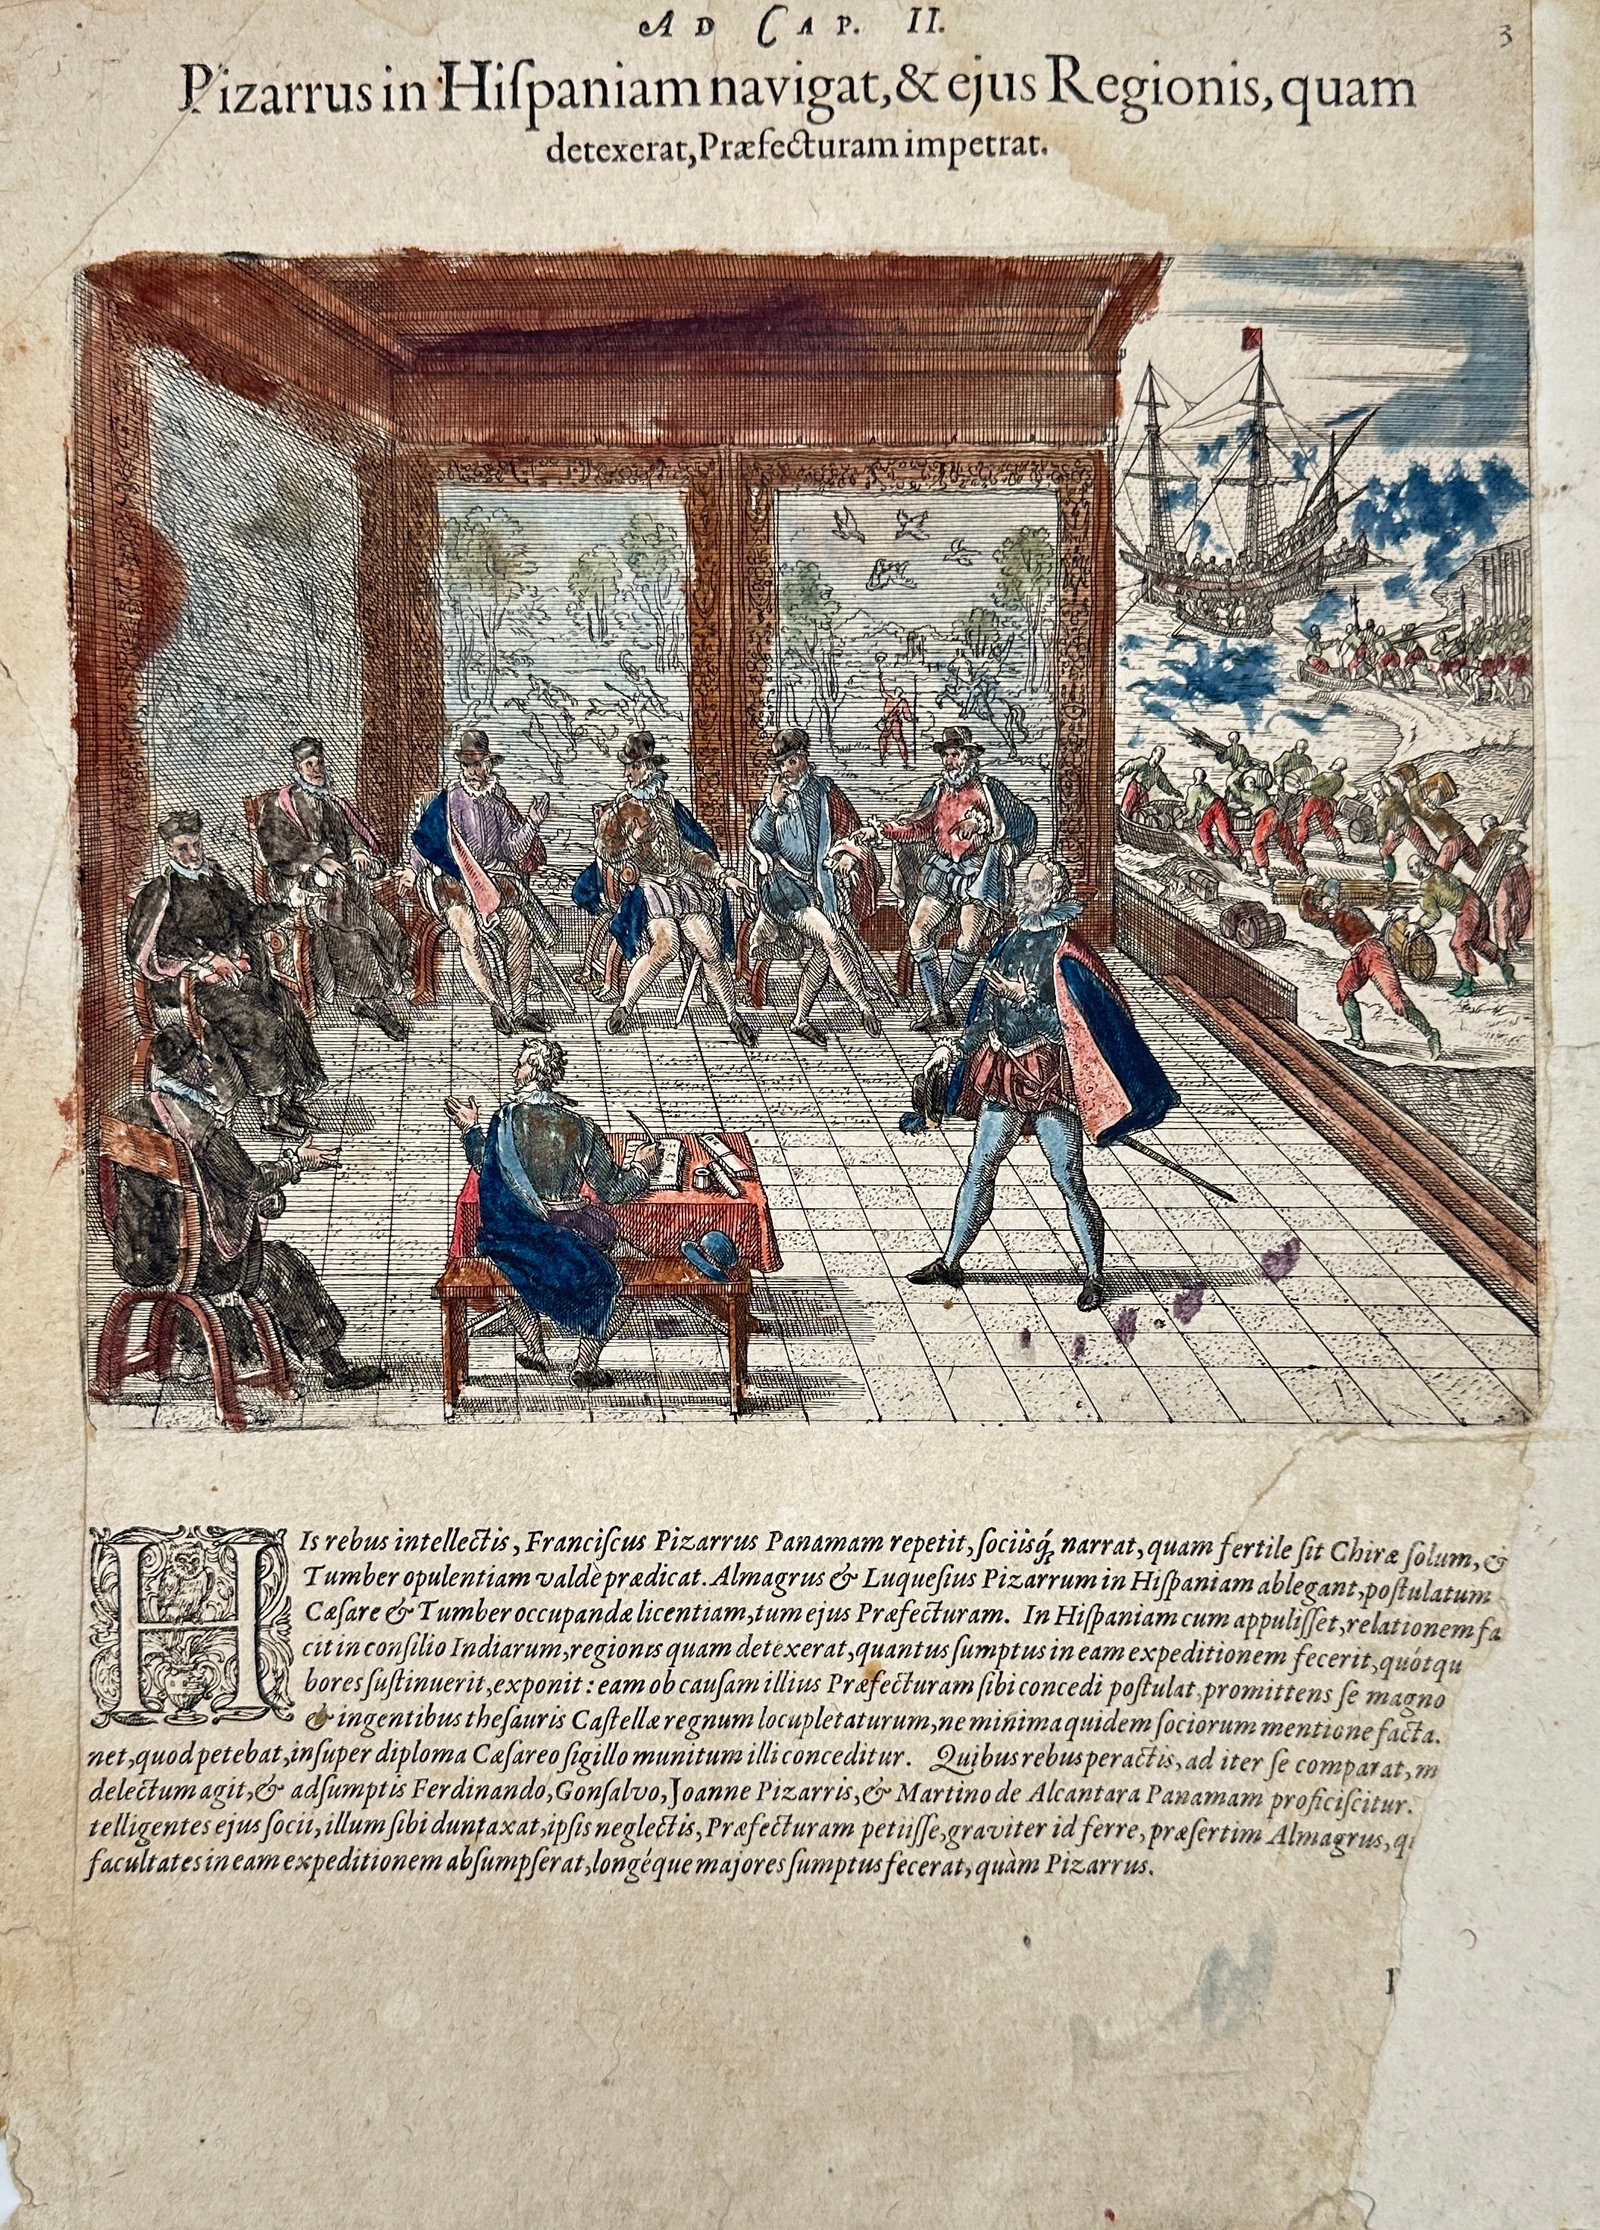 AD CAP. II.
3
Pizarrus in Hiſpaniam navigat, & ejus Regionis, quam
detexerat, Præfecturam impetrat.
HIs rebus intellectis, Franciſcus Pizarrus Panamam repetit, ſociisq́; narrat, quam fertile ſit Chiræ ſolum, &
Tumber opulentiam valdè prædicat. Almagrus & Luqueſius Pizarrum in Hiſpaniam ablegant, poſtulatum
Cæſare & Tumber occupandæ licentiam, tum ejus Præfecturam. In Hiſpaniam cum appuliſſet, relationem fa
cit in conſilio Indiarum, regionis quam detexerat, quantus ſumptus in eam expeditionem fecerit, quótqu
bores ſuſtinuerit, exponit: eam ob cauſam illius Præfecturam ſibi concedi poſtulat, promittens ſe magno
& ingentibus theſauris Caſtellæ regnum locupletaturum, ne minima quidem ſociorum mentione facta.
net, quod petebat, inſuper diploma Cæſareo ſigillo munitum illi conceditur. Quibus rebus peractis, ad iter ſe comparat, m
delectum agit, & adſumptis Ferdinando, Gonſalvo, Joanne Pizarris, & Martino de Alcantara Panamam proficiſcitur.
telligentes ejus ſocii, illum ſibi duntaxat, ipſis neglectis, Præfecturam petiiſſe, graviter id ferre, præſertim Almagrus, q
facultates in eam expeditionem abſumpſerat, longéque majores ſumptus fecerat, quàm Pizarrus.